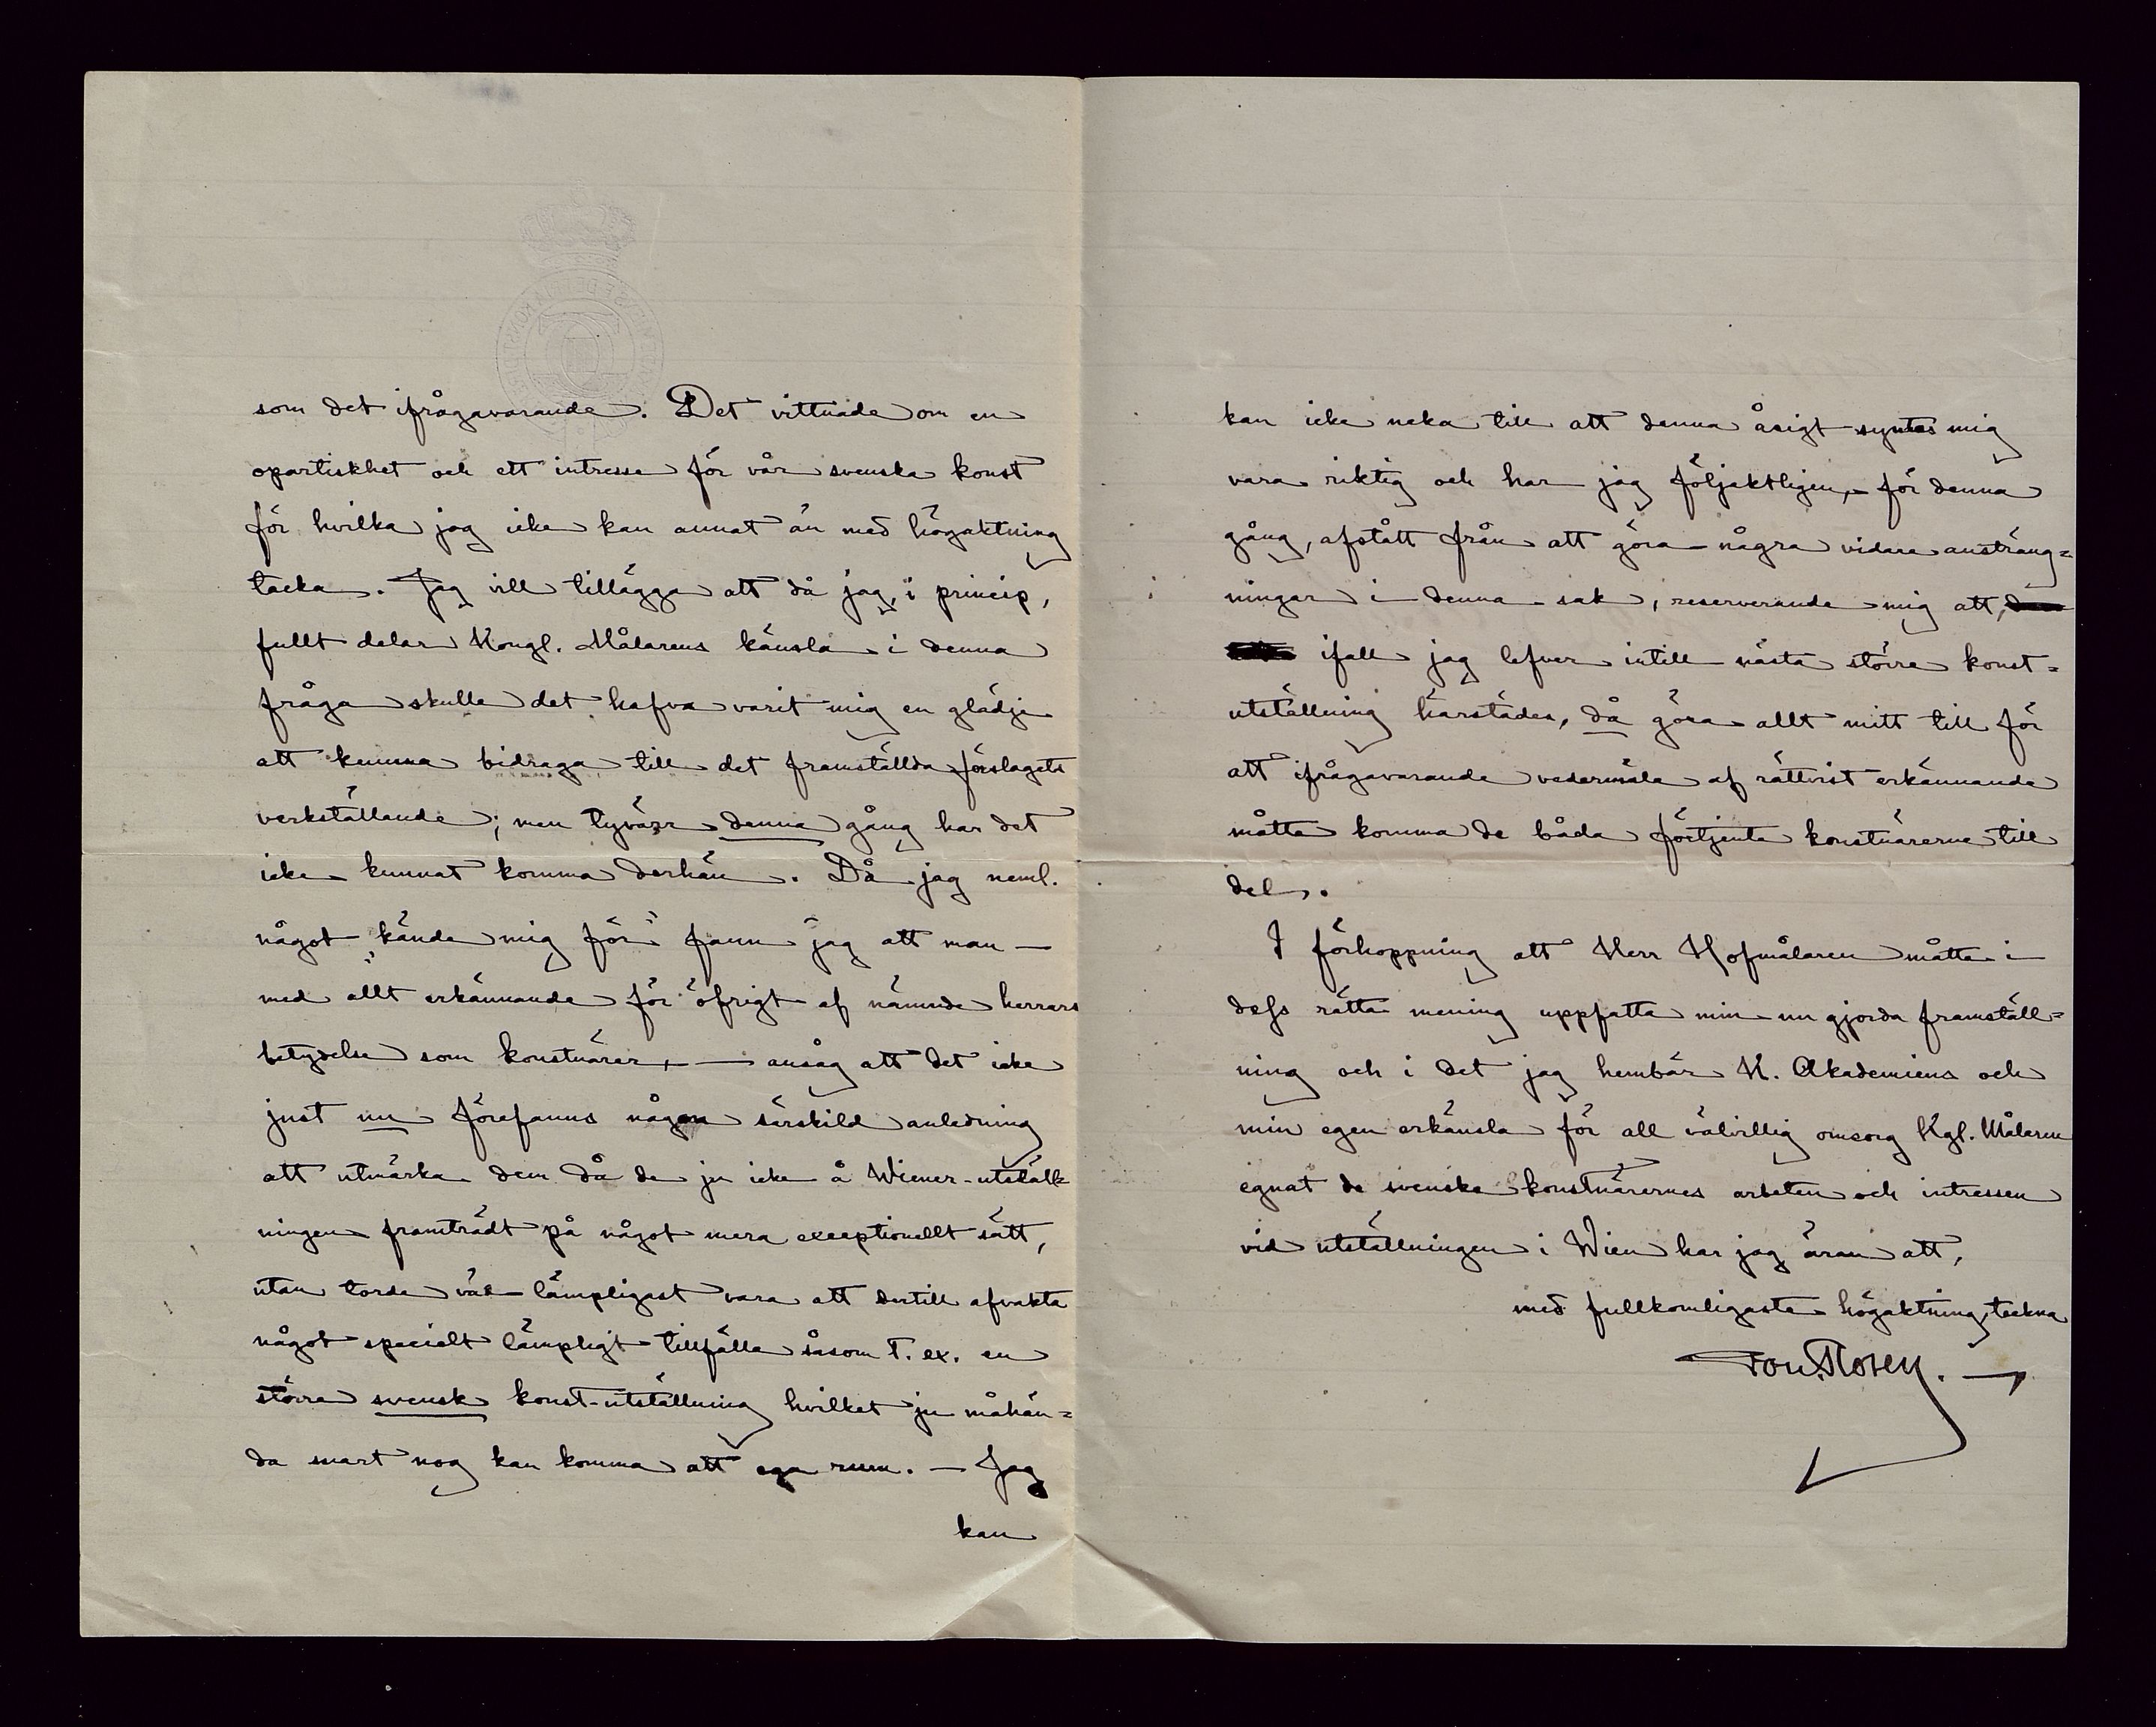 som det ifrågavarande. Det vittnade om en
opartiskhet och ett intresse för vår svenska konst
för hvilka jag icke kan annat än med högaktning
tacka. Jag vill tillägga att då jag, i princip,
fullt delar Kongl. Målarens känsla i denna
fråga skulle det hafva varit mig en glädje
att kunna bidraga till det framställda förslagets
verkställande; men tyvärr denna gång har det
icke kunnat komma derhän. Då jag neml.
något „kände mig för" fann jag att man —
med allt erkännande för öfrigt af nämnde herrars
betydelse som konstnärer, — ansåg att det icke
just nu förefanns någon särskild anledning
att utmärka dem då de ju icke å Wiener-utställ-
ningen framträdt på något mera exceptionellt sätt,
utan torde väl lämpligast vara att dertill afvakta
något specielt lämpligt tillfälle såsom t. ex. en
större svensk konst-utställning hvilket ju måhän=
da snart nog kan komma att ega rum. — Jag
kan
kan icke neka till att denna åsigt syntes mig
vara riktig och har jag följaktligen, för denna
gång, afstått från att göra några vidare ansträng=
ningar i denna sak, reserverande mig att,
ifall jag lefver intill nästa större konst=
utställning härstädes, då göra allt mitt till för
att ifrågavarande vedermäle af rättvist erkännande
måtte komma de båda förtjenta konstnärerne till
del.
I förhoppning att Herr Hofmålaren måtte i
dess rätta mening uppfatta min nu gjorda framställ=
ning och i det jag hembär K. Akademiens och
min egen erkänsla för all välvillig omsorg Kgl. Målaren
egnat de svenska konstnärernes arbeten och intressen
vid utställningen i Wien har jag äran att,
med fullkomligaste högaktning, teckna
von Rosen. —